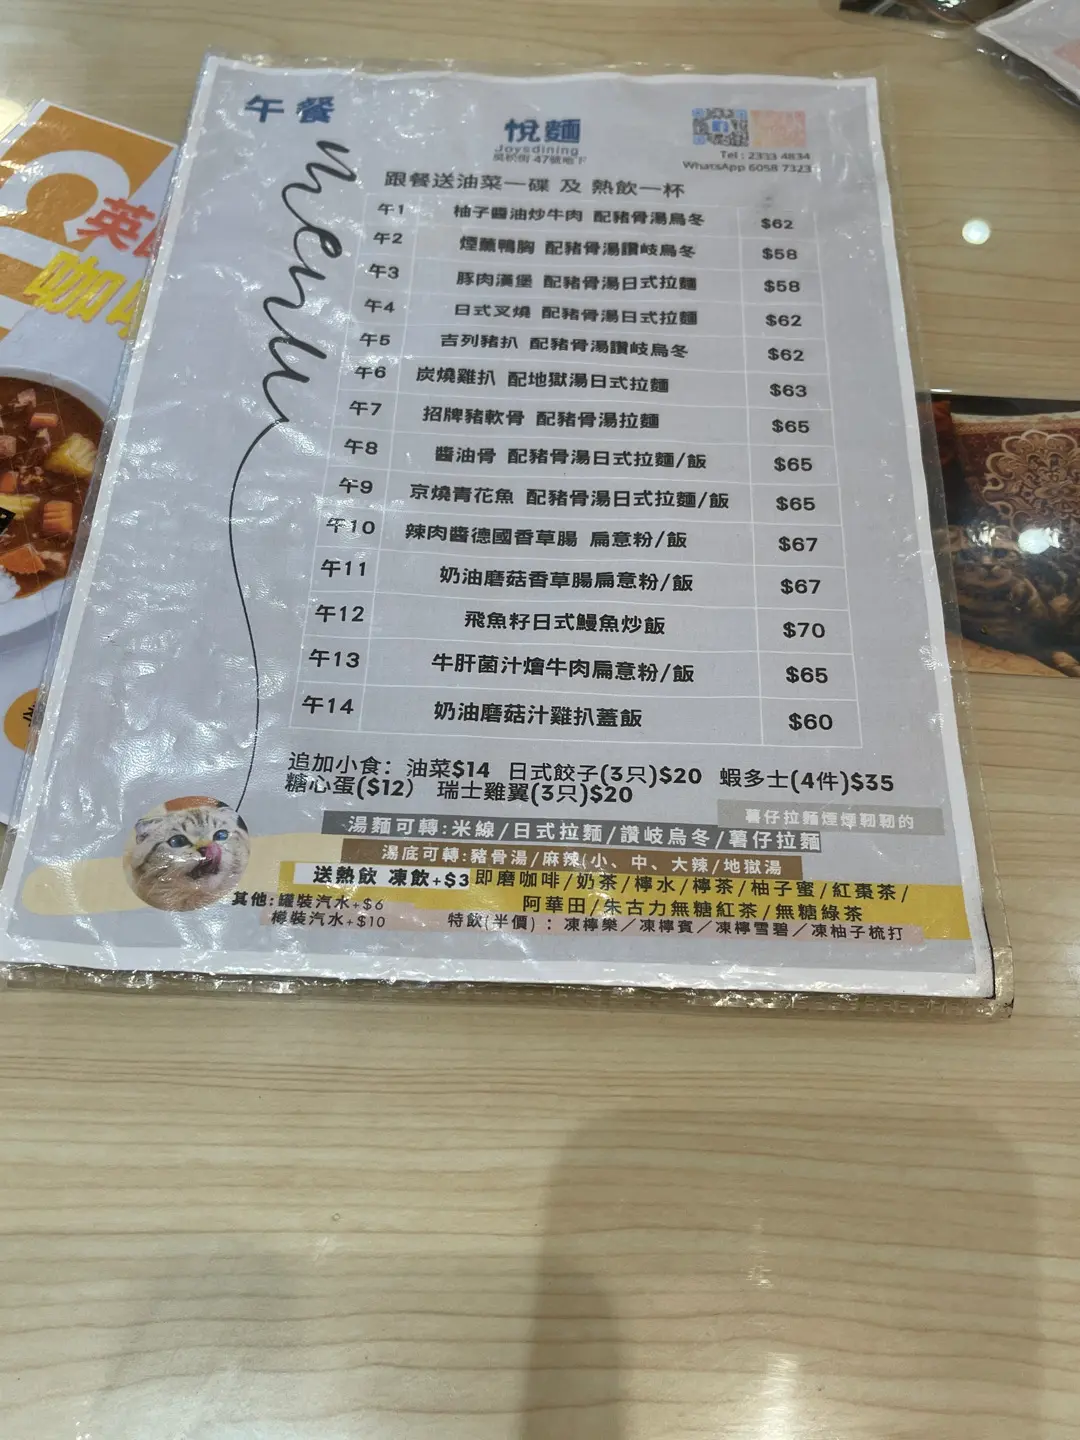 午餐
menu
悅麵
Joysdining
吳松街 47號地下
Tel : 2333 4834
WhatsApp 6058 7323
跟餐送油菜一碟 及 熱飲一杯
午1 柚子醬油炒牛肉 配豬骨湯烏冬 $62
午2 煙薰鴨胸 配豬骨湯讚岐烏冬 $58
午3 豚肉漢堡 配豬骨湯日式拉麵 $58
午4 日式叉燒 配豬骨湯日式拉麵 $62
午5 吉列豬扒 配豬骨湯讚岐烏冬 $62
午6 炭燒雞扒 配地獄湯日式拉麵 $63
午7 招牌豬軟骨 配豬骨湯拉麵 $65
午8 醬油骨 配豬骨湯日式拉麵/飯 $65
午9 京燒青花魚 配豬骨湯日式拉麵/飯 $65
午10 辣肉醬德國香草腸 扁意粉/飯 $67
午11 奶油磨菇香草腸扁意粉/飯 $67
午12 飛魚籽日式鰻魚炒飯 $70
午13 牛肝菌汁燴牛肉扁意粉/飯 $65
午14 奶油磨菇汁雞扒蓋飯 $60
追加小食：油菜$14 日式餃子(3只)$20 蝦多士(4件)$35
糖心蛋($12） 瑞士雞翼(3只)$20
薯仔拉麵煙煙韌韌的
湯麵可轉:米線/日式拉麵/讚岐烏冬/薯仔拉麵
湯底可轉:豬骨湯/麻辣(小、中、大辣/地獄湯
送熱飲 凍飲+$3 即磨咖啡/奶茶/檸水/檸茶/柚子蜜/紅棗茶/
阿華田/朱古力無糖紅茶/無糖綠茶
其他:罐裝汽水+$6
樽裝汽水+$10
特飲(半價) ：凍檸樂／凍檸賓／凍檸雪碧／凍柚子梳打
英
咖